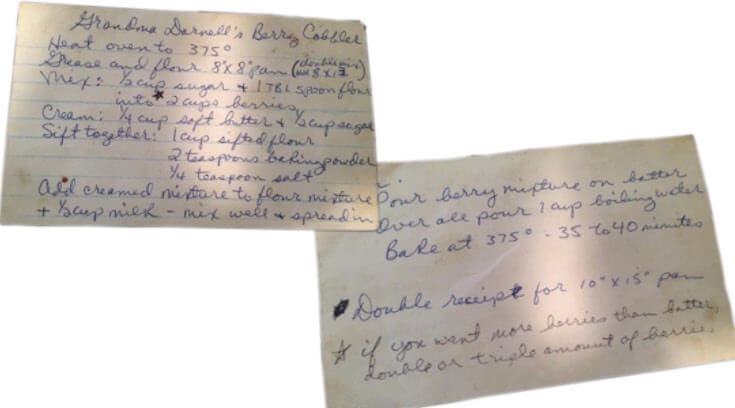 Grandma Darnell's Berry Cobbler
Heat oven to 375°
Grease and flour 8"x8" pan (double
8x12)
Mix: ½ cup sugar + 1 TBL spoon flour
into * 2 cups berries,
Cream: ¼ cup soft butter + ½ cup sugar
Sift together: 1 cup sifted flour
2 teaspoons baking powder
¼ teaspoon salt
Add creamed mixture to flour mixture
+ ½ cup milk - mix well + spread in
Pour berry mixture on batter
Over all pour 1 cup boiling water
BaKe at 375° - 35 to 40 minutes
Double receipt for 10" x 15" pan
* if you want more berries than batter,
double or triple amount of berrie.